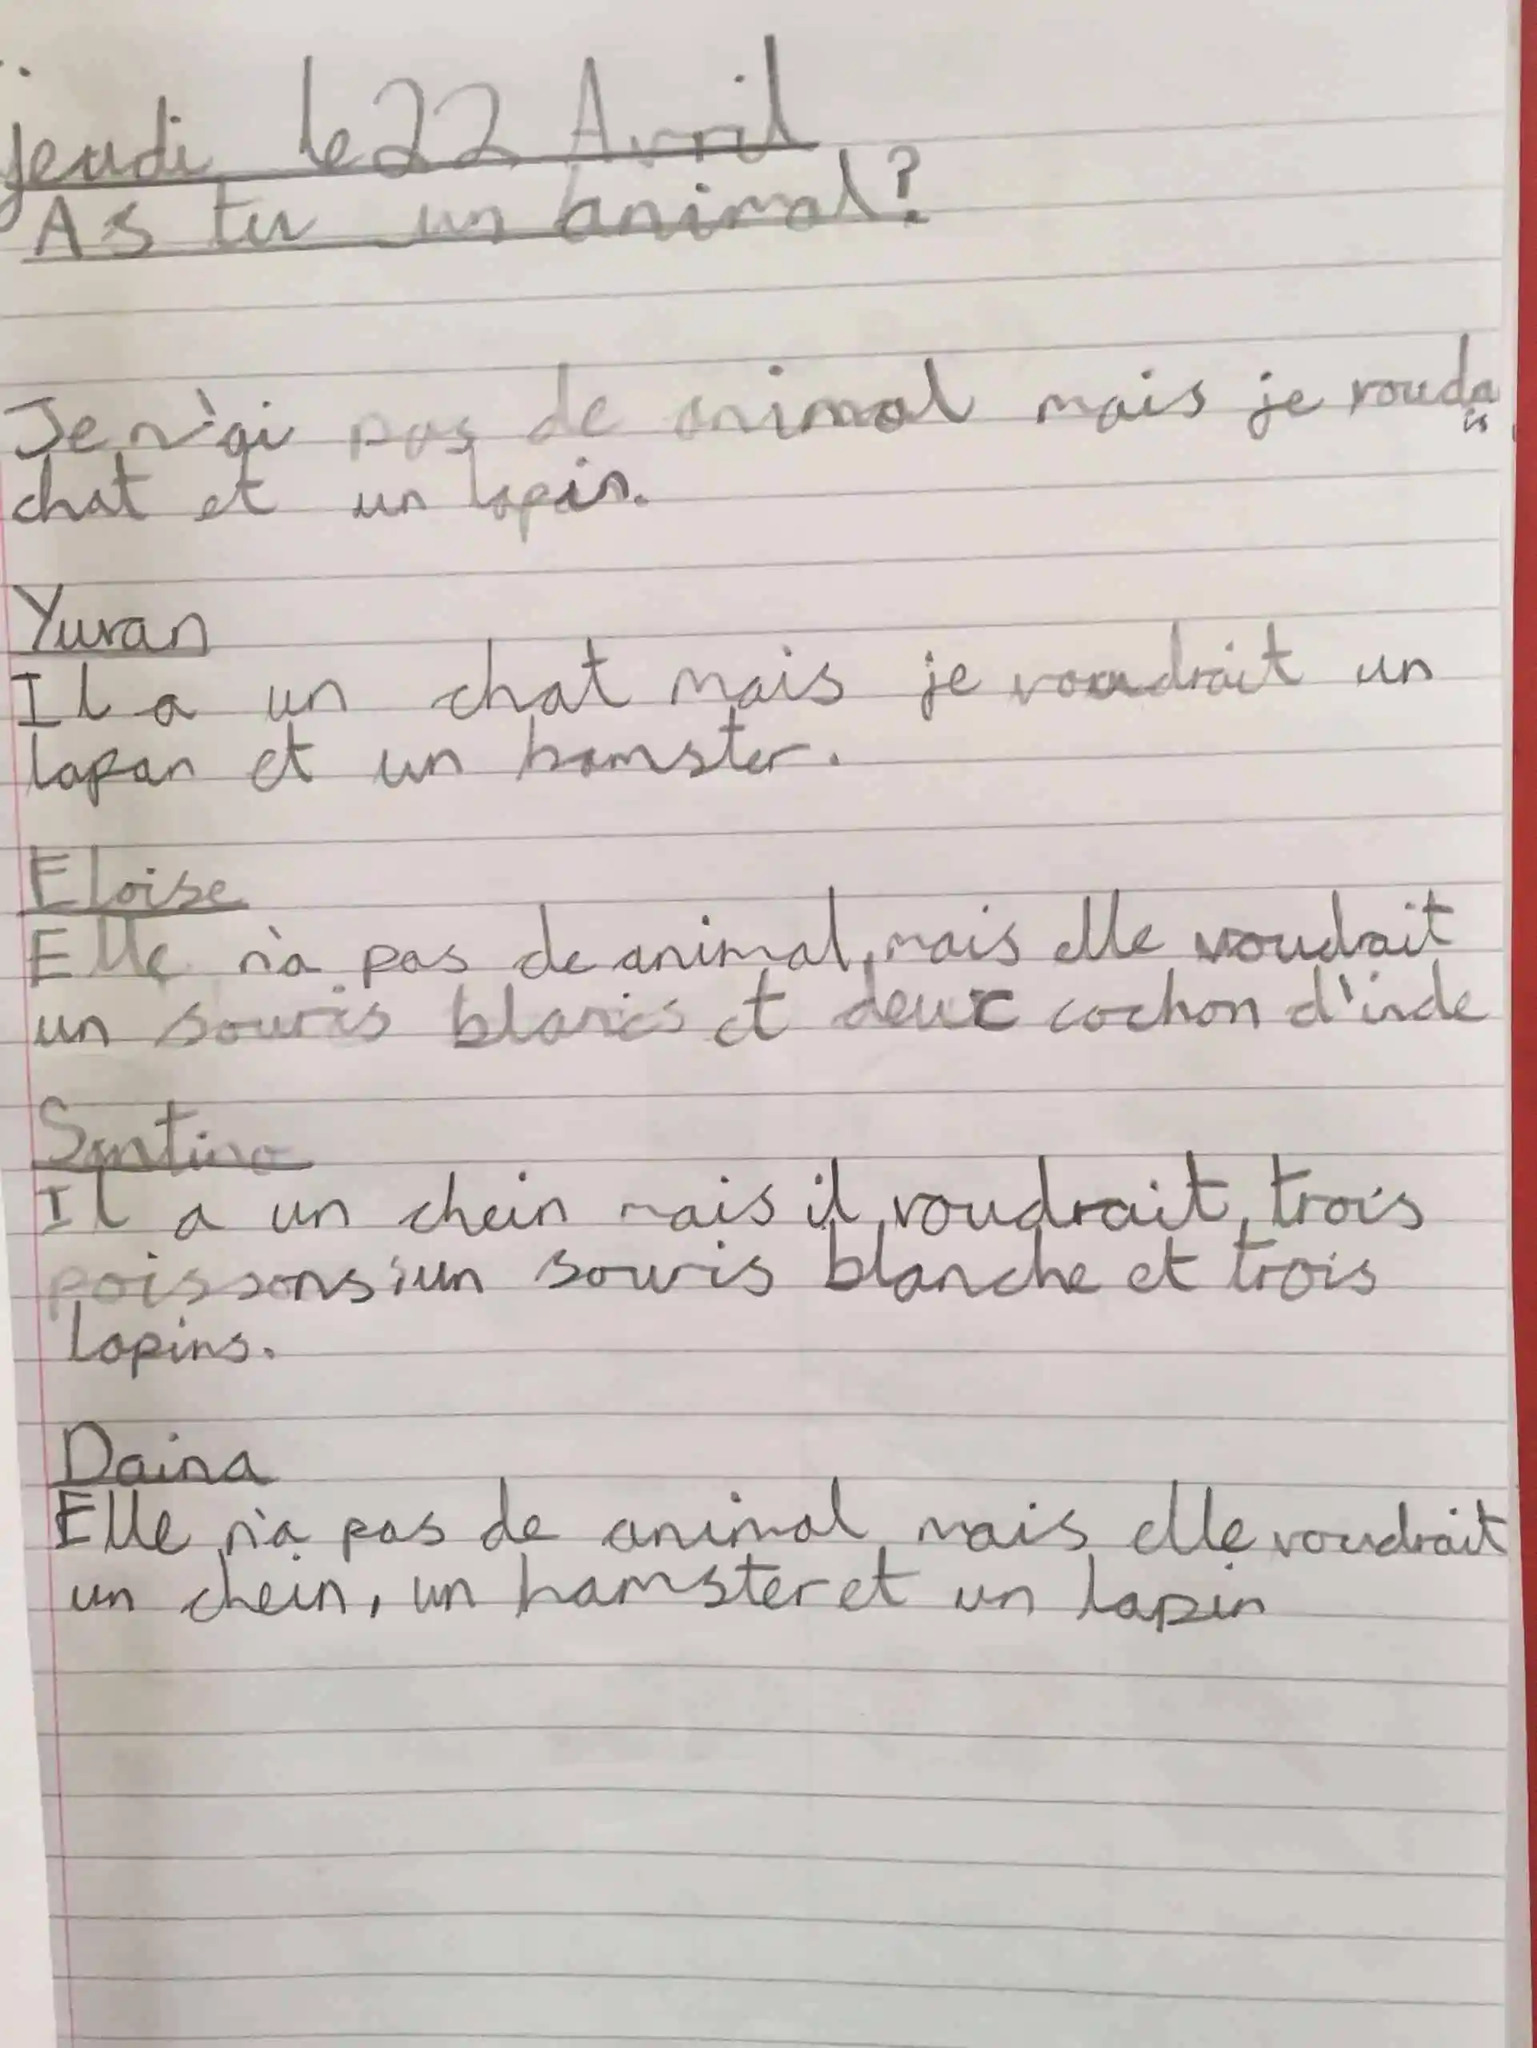 jeudi le 22 Avril
As tu un animal?
Je n'ai pas de animal mais je
chat et un lapin.
Yuran
Il a un chat mais je voudrait un
lapan et un hamster.
Eloise
Elle n'a pas de animal, mais elle voudrait
un souris et deux cochon d'inde
Santino
Il a un chein mais il voudrait, trois
poissons, un souris blanche et trois
lapins.
Daina
Elle n'a pas de animal mais elle voudrait
un chein, un hamster et un lapin